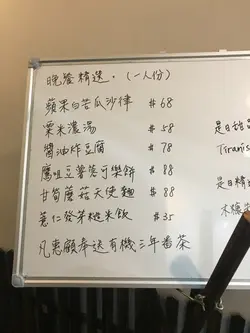 晚餐精選。(一人份)
蘋果白苦瓜沙律 #68
粟米濃湯 #58
醬油炸豆腐 #78
鷹咀豆薯蓉可樂餅 #88
甘筍蘑菇天使麵 #88
薏仁發芽糙米飯 #35
凡惠顧奉送有機三年番茶
是日甜
Tiram
是日精
木